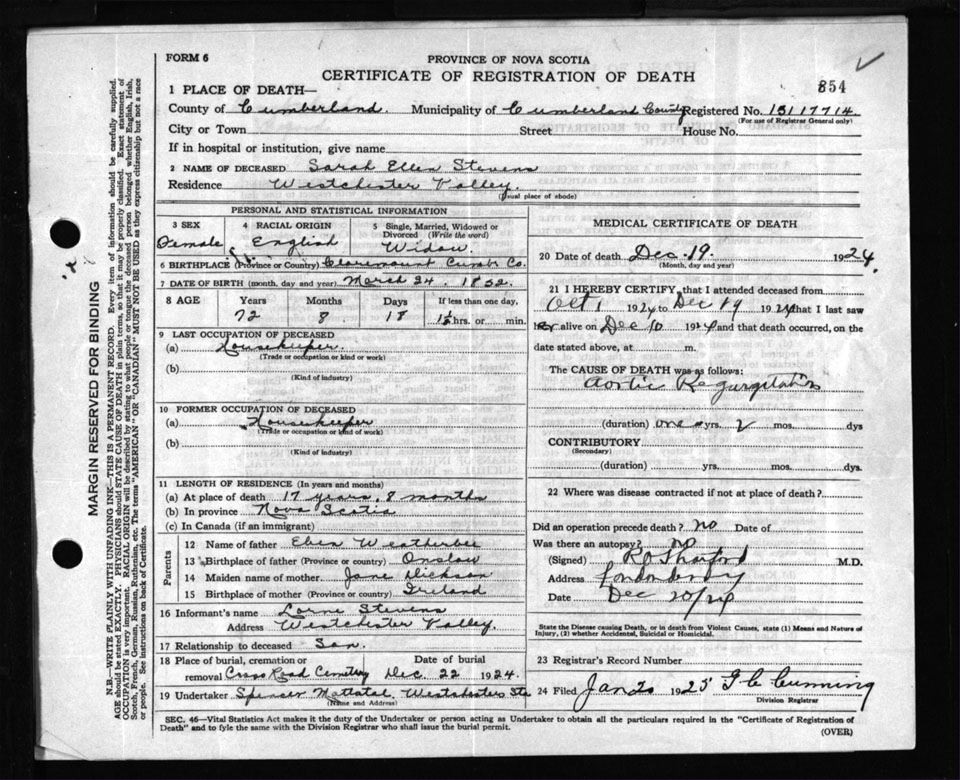 FORM 6
PROVINCE OF NOVA SCOTIA
CERTIFICATE OF REGISTRATION OF DEATH
854
1 PLACE OF DEATH—
County of Cumberland. Municipality of Cumberland County Registered No. 15117714
(For use of Registrar General only)
City or Town Street House No.
If in hospital or institution, give name
2 NAME OF DECEASED Sarah Ellen Stevens
Residence Westchester Valley.
(Usual place of abode)
PERSONAL AND STATISTICAL INFORMATION
3 SEX 4 RACIAL ORIGIN 5 Single, Married, Widowed or Divorced (Write the word)
Female English Widow
6 BIRTHPLACE (Province or Country) Claremount Cumb. Co.
7 DATE OF BIRTH (month, day and year) March 24. 1852.
8 AGE Years Months Days If less than one day,
72 8 18 hrs. or min.
9 LAST OCCUPATION OF DECEASED
(a) Housekeeper.
(Trade or occupation or kind or work)
(b)
(Kind of industry)
10 FORMER OCCUPATION OF DECEASED
(a) Housekeeper
(Trade or occupation or kind of work)
(b)
(Kind of industry)
11 LENGTH OF RESIDENCE (In years and months)
(a) At place of death 17 years, 8 months
(b) In province Nova Scotia
(c) In Canada (if an immigrant)
Parents
12 Name of father Eben Weatherbee
13 Birthplace of father (Province or country) Onslow
14 Maiden name of mother Jane Dickson
15 Birthplace of mother (Province or country) Ireland
16 Informant's name Lorne Stevens
Address Westchester Valley.
17 Relationship to deceased Son.
18 Place of burial, cremation or removal Cross Road Cemetery Date of burial Dec. 22 1924.
19 Undertaker Spencer Mattatal, Westchester Sta
(Name and Address)
MEDICAL CERTIFICATE OF DEATH
20 Date of death Dec. 19. 1924.
(Month, day and year)
21 I HEREBY CERTIFY, that I attended deceased from
Oct 1 1924 to Dec 19 1924 that I last saw
her alive on Dec 10 1924 and that death occurred, on the
date stated above, at m.
The CAUSE OF DEATH was as follows:
Aortic Regurgitation
(duration) one yrs. 2 mos. dys
CONTRIBUTORY
(Secondary)
(duration) yrs. mos. dys.
22 Where was disease contracted if not at place of death?
Did an operation precede death? no Date of
Was there an autopsy? no
(Signed) M.D.
Address Londonderry
Date Dec 20/24
State the Disease causing Death, or in death from Violent Causes, state (1) Means and Nature of Injury, (2) whether Accidental, Suicidal or Homicidal.
23 Registrar's Record Number
24 Filed Jan 20 1925 Cunning
Division Registrar
SEC. 46—Vital Statistics Act makes it the duty of the Undertaker or person acting as Undertaker to obtain all the particulars required in the "Certificate of Registration of
Death" and to fyle the same with the Division Registrar who shall issue the burial permit.
(OVER)
MARGIN RESERVED FOR BINDING
N.B—WRITE PLAINLY WITH UNFADING INK—THIS IS A PERMANENT RECORD. Every item of information should be carefully supplied.
AGE should be stated EXACTLY. PHYSICIANS should STATE CAUSE OF DEATH in plain terms, so that it may be properly classified. Exact statement of
OCCUPATION is very important. RACIAL ORIGIN will be described by stating to what people or tongue the deceased person belonged whether English, Irish,
Scotch, French, German, Russian, Ruthenian, etc. The terms "AMERICAN" OR "CANADIAN" MUST NOT BE USED as they express citizenship but not a race
or people. See instructions on back of Certificate.